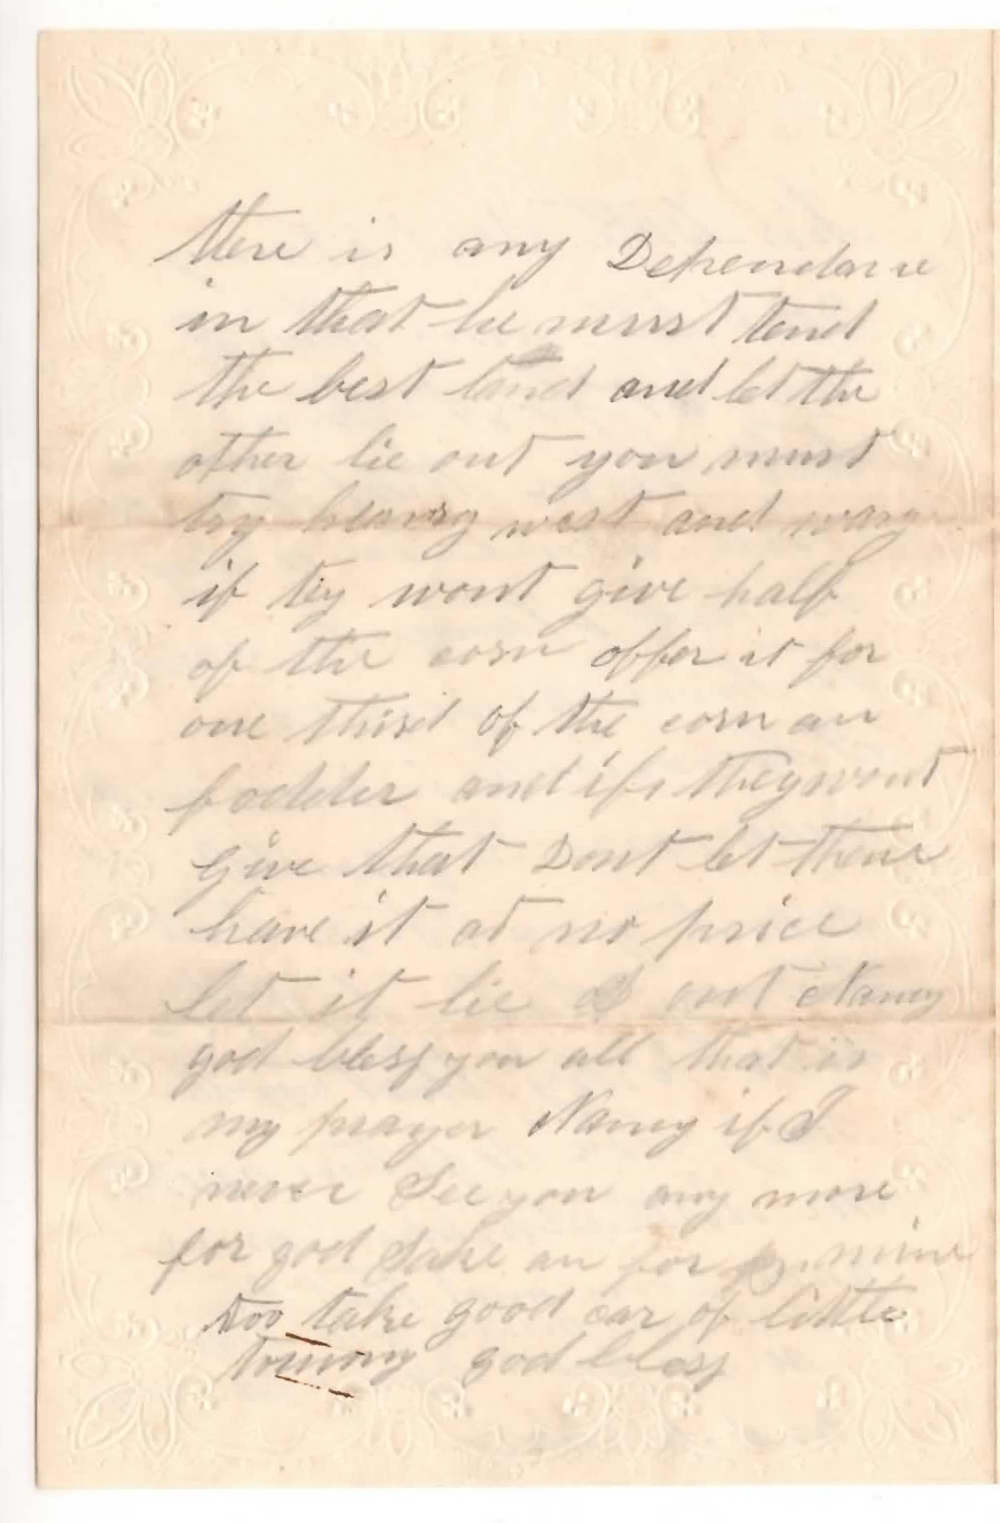 there is any Dependance
in that he must tend
the best land and let the
other lie out you must
try west and
if tey wont give half
of the corn offer it for
one third of the corn an
fodder and if they wont
give that Dont let them
have it at no price
let it lie out Nancy
god bless you all that is
my prayer Nancy if I
never See you any more
for god Sake an for mine
too take good car of little
tommy god bless